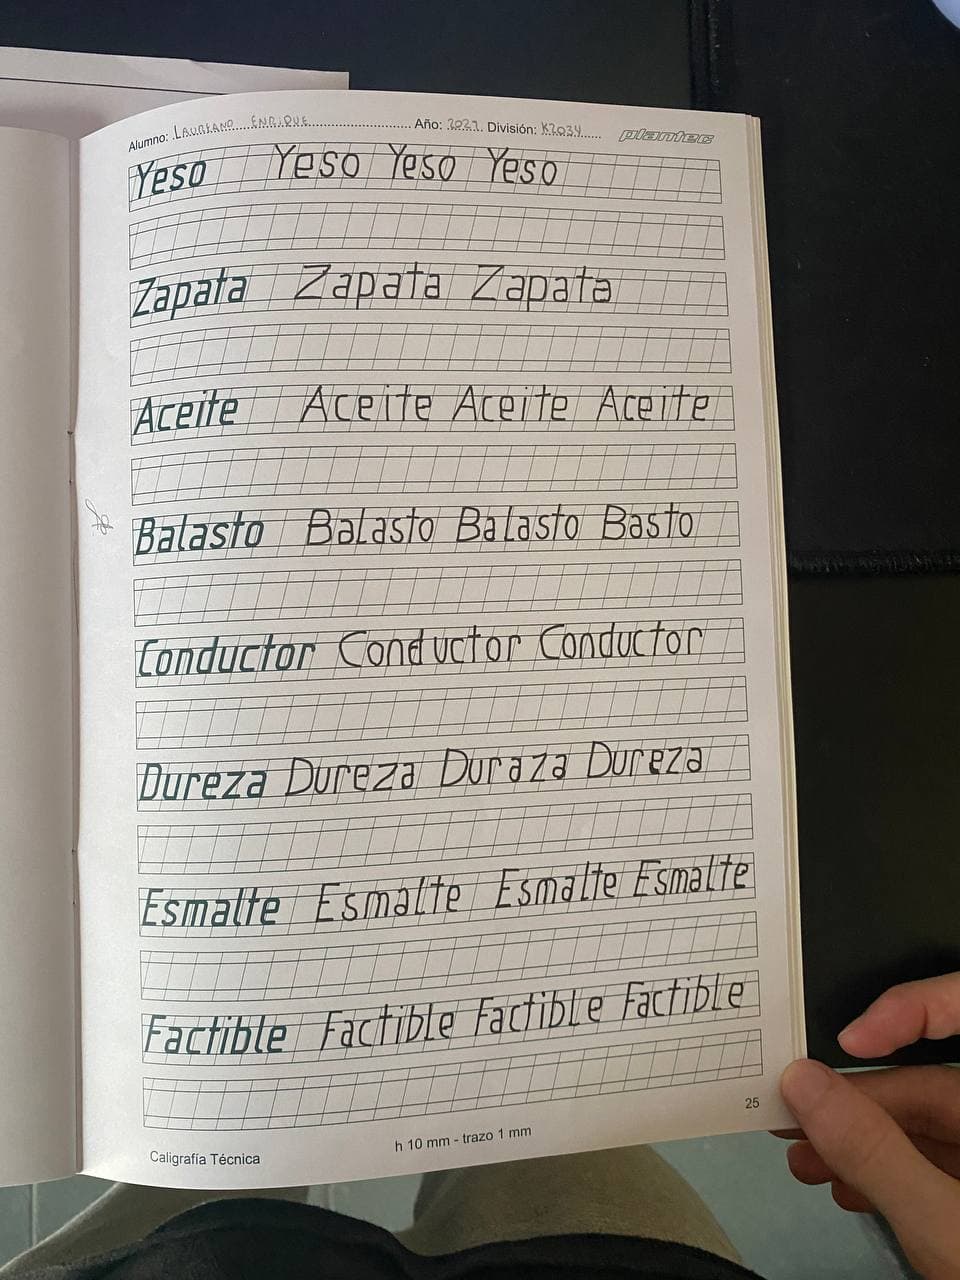 Alumno: LAUREANO ENRIQUE Año: 2021. División: K2034 plantec
Yeso Yeso Yeso Yeso
Zapata Zapata Zapata
Aceite Aceite Aceite Aceite
Balasto Balasto Balasto Basto
Conductor Conductor Conductor
Dureza Dureza Duraza Dureza
Esmalte Esmalte Esmalte Esmalte
Factible Factible Factible Factible
25
h 10 mm - trazo 1 mm
Caligrafía Técnica